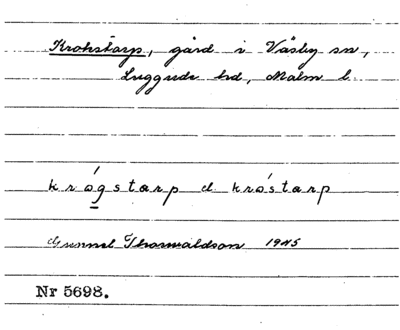 Krokstarp, gård i Väsby sn,
Luggude hd, Malm l.
krógstarp el. króstarp
Gunnel Thorwaldson 1945
Nr 5698.